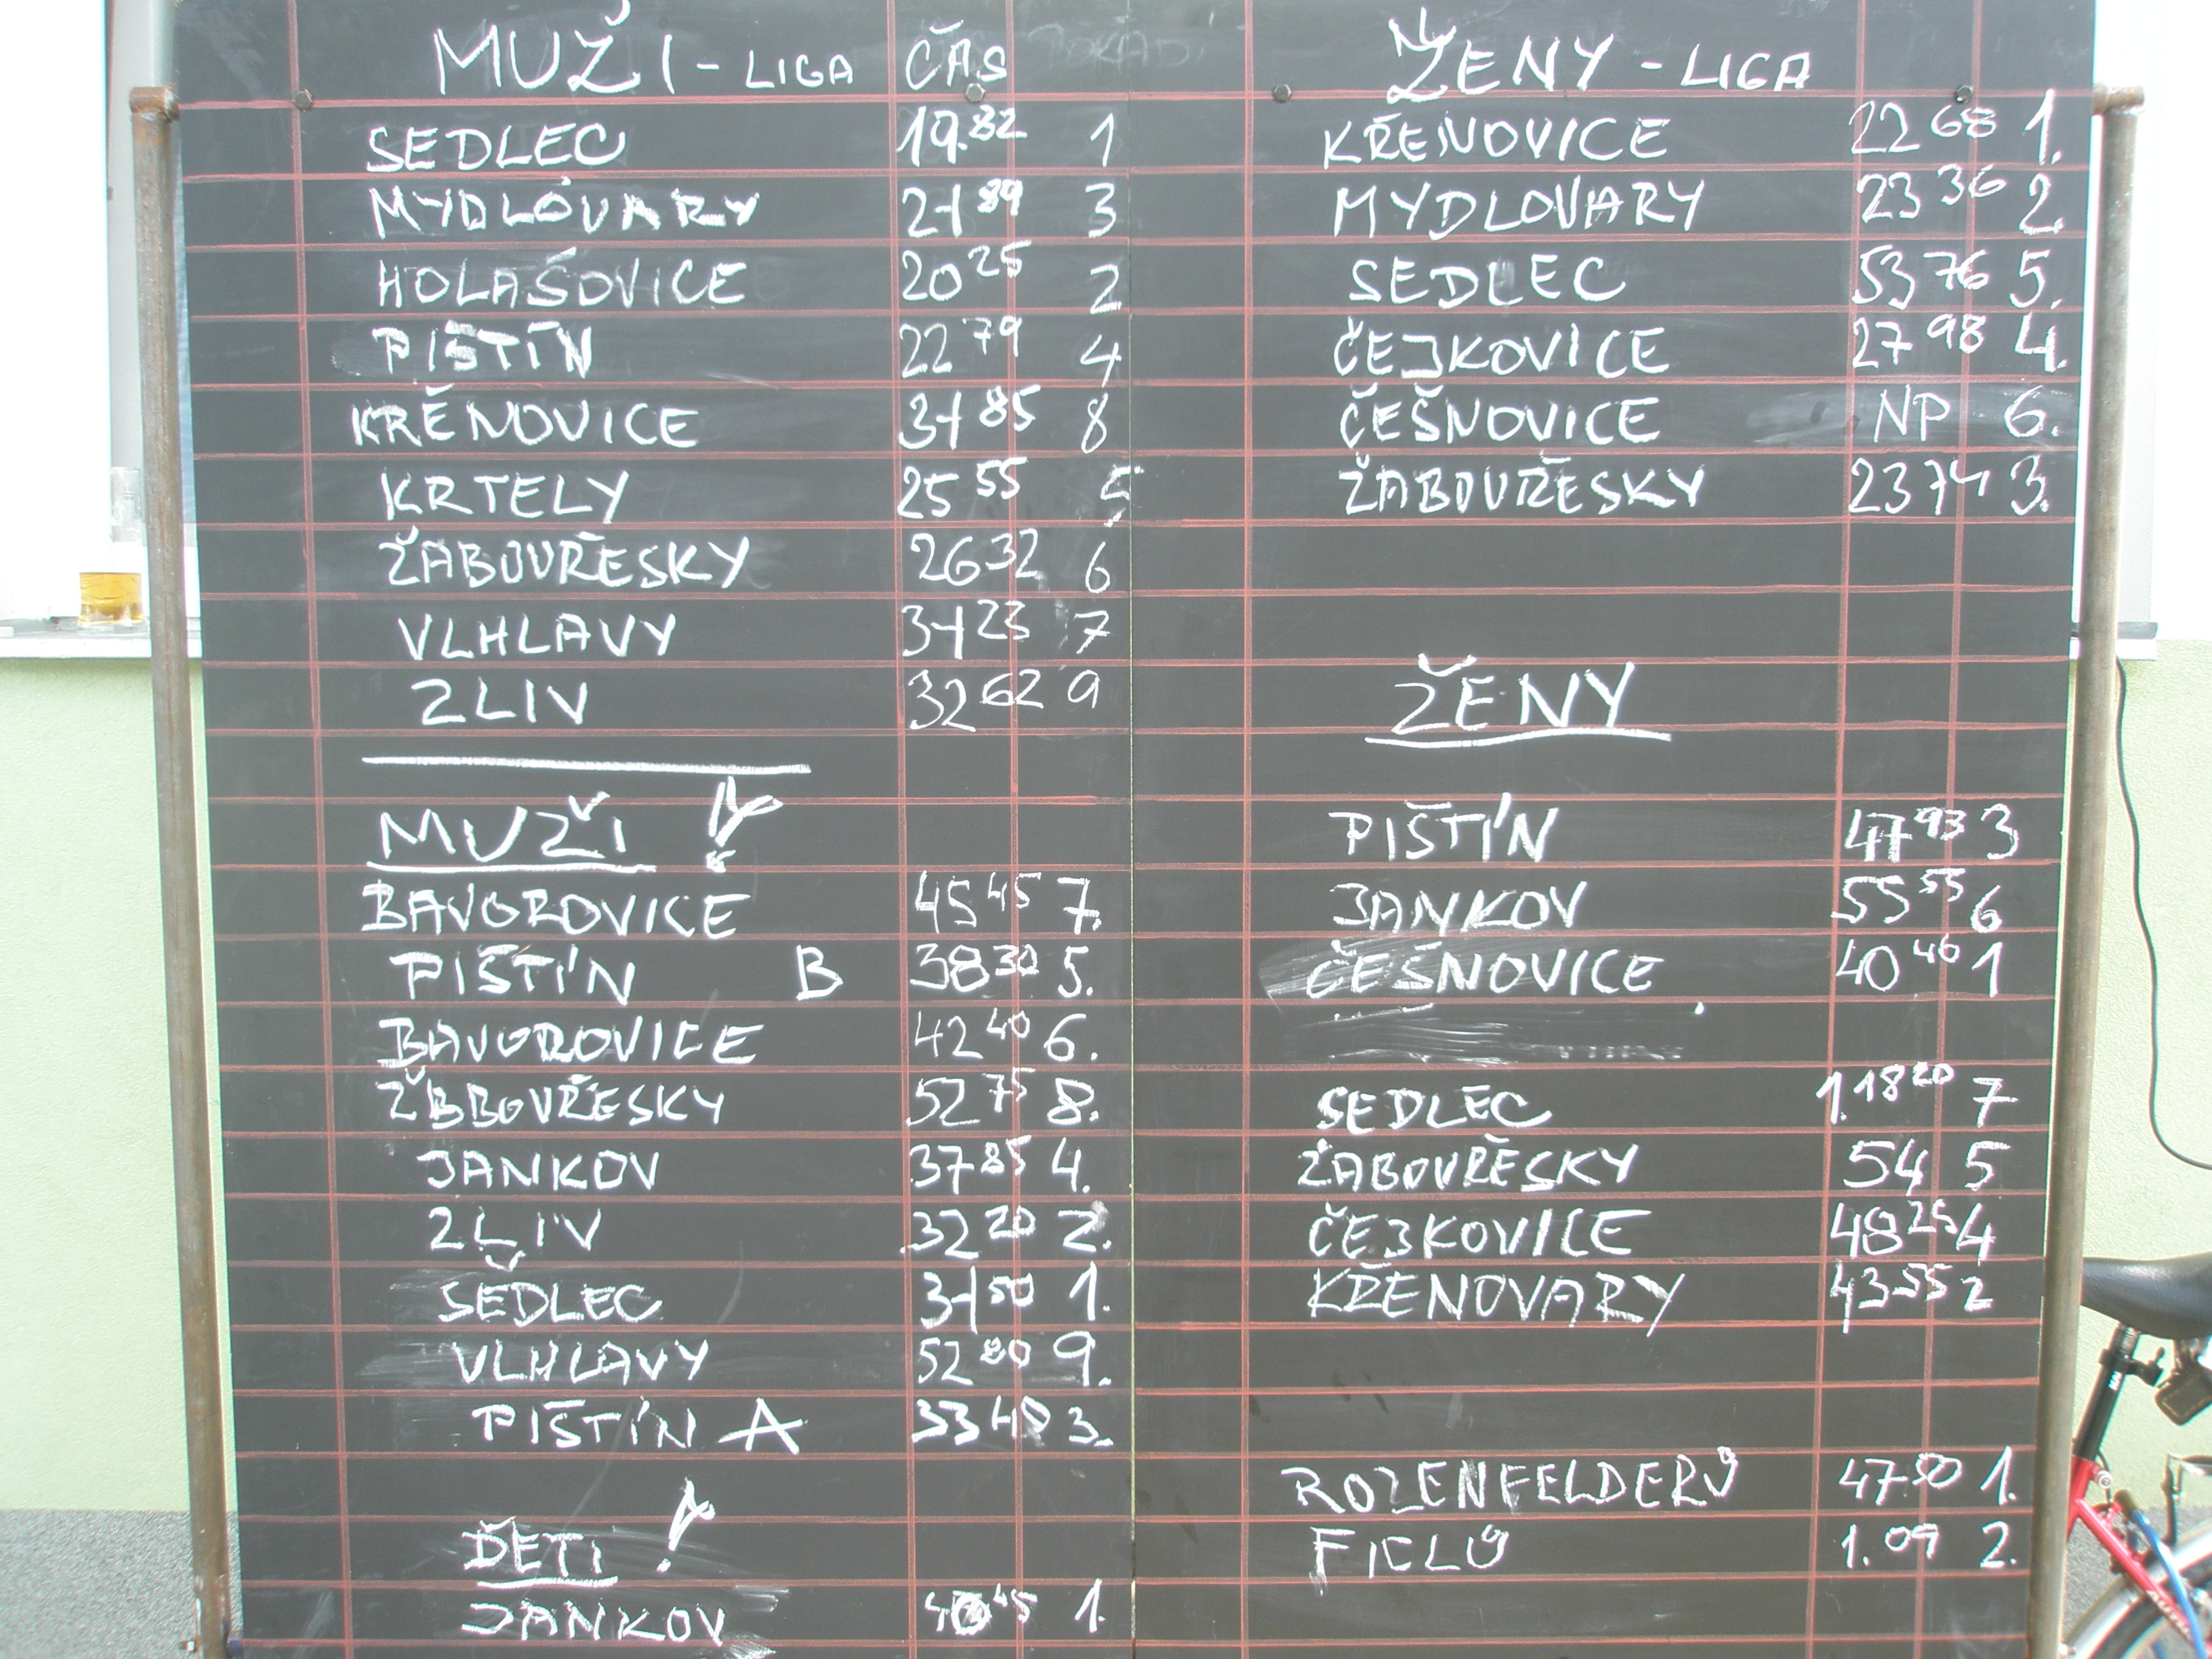 MUŽI - LIGA ČAS
SEDLEC 19.82 1
MYDLOVARY 21 89 3
HOLAŠOVICE 20 25 2
PIŠTÍN 22 79 4
KRĚNOVICE 31 85 8
KRTELY 25 55 5
ŽABOVŘESKY 26 32 6
VLHLAVY 31 23 7
ZLIV 32 62 9
MUŽI
BAVOROVICE 45 45 7.
PIŠTÍN B 38 30 5.
BAVOROVICE 42 40 6.
ŽBBOVŘESKY 52 75 8.
JANKOV 37 85 4.
ZLIV 32 20 2.
SEDLEC 31 50 1.
VLHLAVY 52 80 9.
PIŠTÍN A 33 40 3.
DĚTI !
JANKOV 45 1.
ŽENY - LIGA
KŘENOVICE 22 68 1.
MYDLOVARY 23 36 2.
SEDLEC 53 76 5.
ČEJKOVICE 27 98 4.
ČEŠNOVICE NP 6.
ŽABOVŘESKY 23 74 3.
ŽENY
PIŠTÍN 47 93 3
JANKOV 55 55 6
ČEŠNOVICE 40 46 1
SEDLEC 1.18 20 7
ŽABOVŘESKY 54 5
ČEJKOVICE 48 25 4
KŘENOVARY 43 55 2
ROZENFELDERŮ 47 50 1.
FICLŮ 1.09 2.